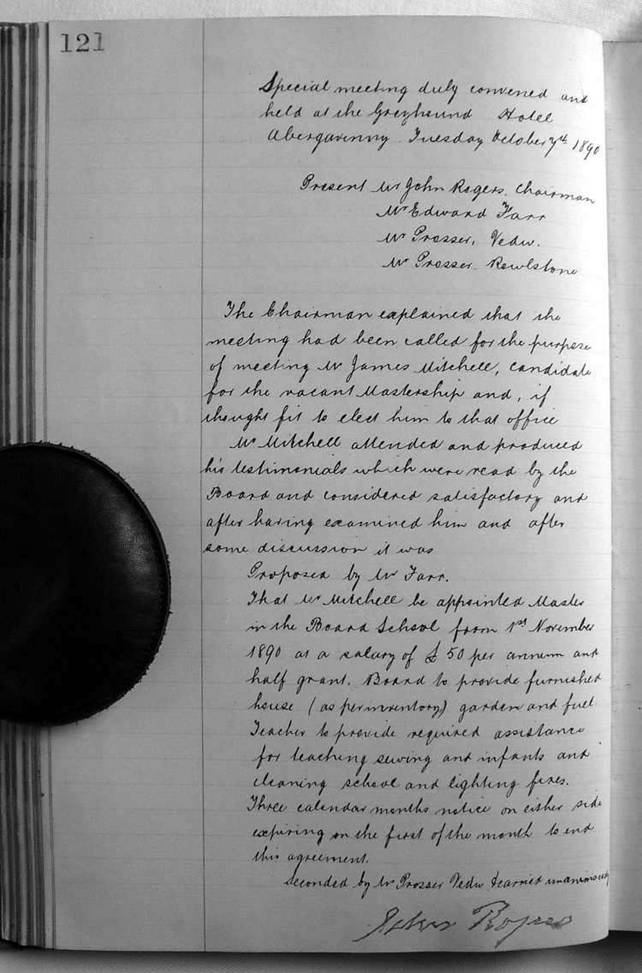 121
Special meeting duly convened and
held at the Greyhound Hotel
Abergavenny Tuesday October 7th 1890
Present Mr John Rogers, Chairman
Mr Edward Farr
Mr Prosser, Vedw.
Mr Prosser Rowlstone
The Chairman explained that the
meeting had been called for the purpose
of meeting Mr James Mitchell, candidate
for the vacant Mastership and, if
thought fit to elect him to that office
Mr Mitchell attended and produced
his testimonials which were read by the
Board and considered satisfactory and
after having examined him and after
some discussion it was
Proposed by Mr Farr.
That Mr Mitchell be appointed Master
in the Board School from 1st November
1890 at a salary of £50 per annum and
half grant. Board to provide furnished
house (as per inventory) garden and fuel
Teacher to provide required assistance
for teaching sewing and infants and
cleaning school and lighting fires.
Three calendar months notice on either side
expiring on the first of the month to end
this agreement.
Seconded by Mr Prosser Vedw & carried unanimously
John Rogers